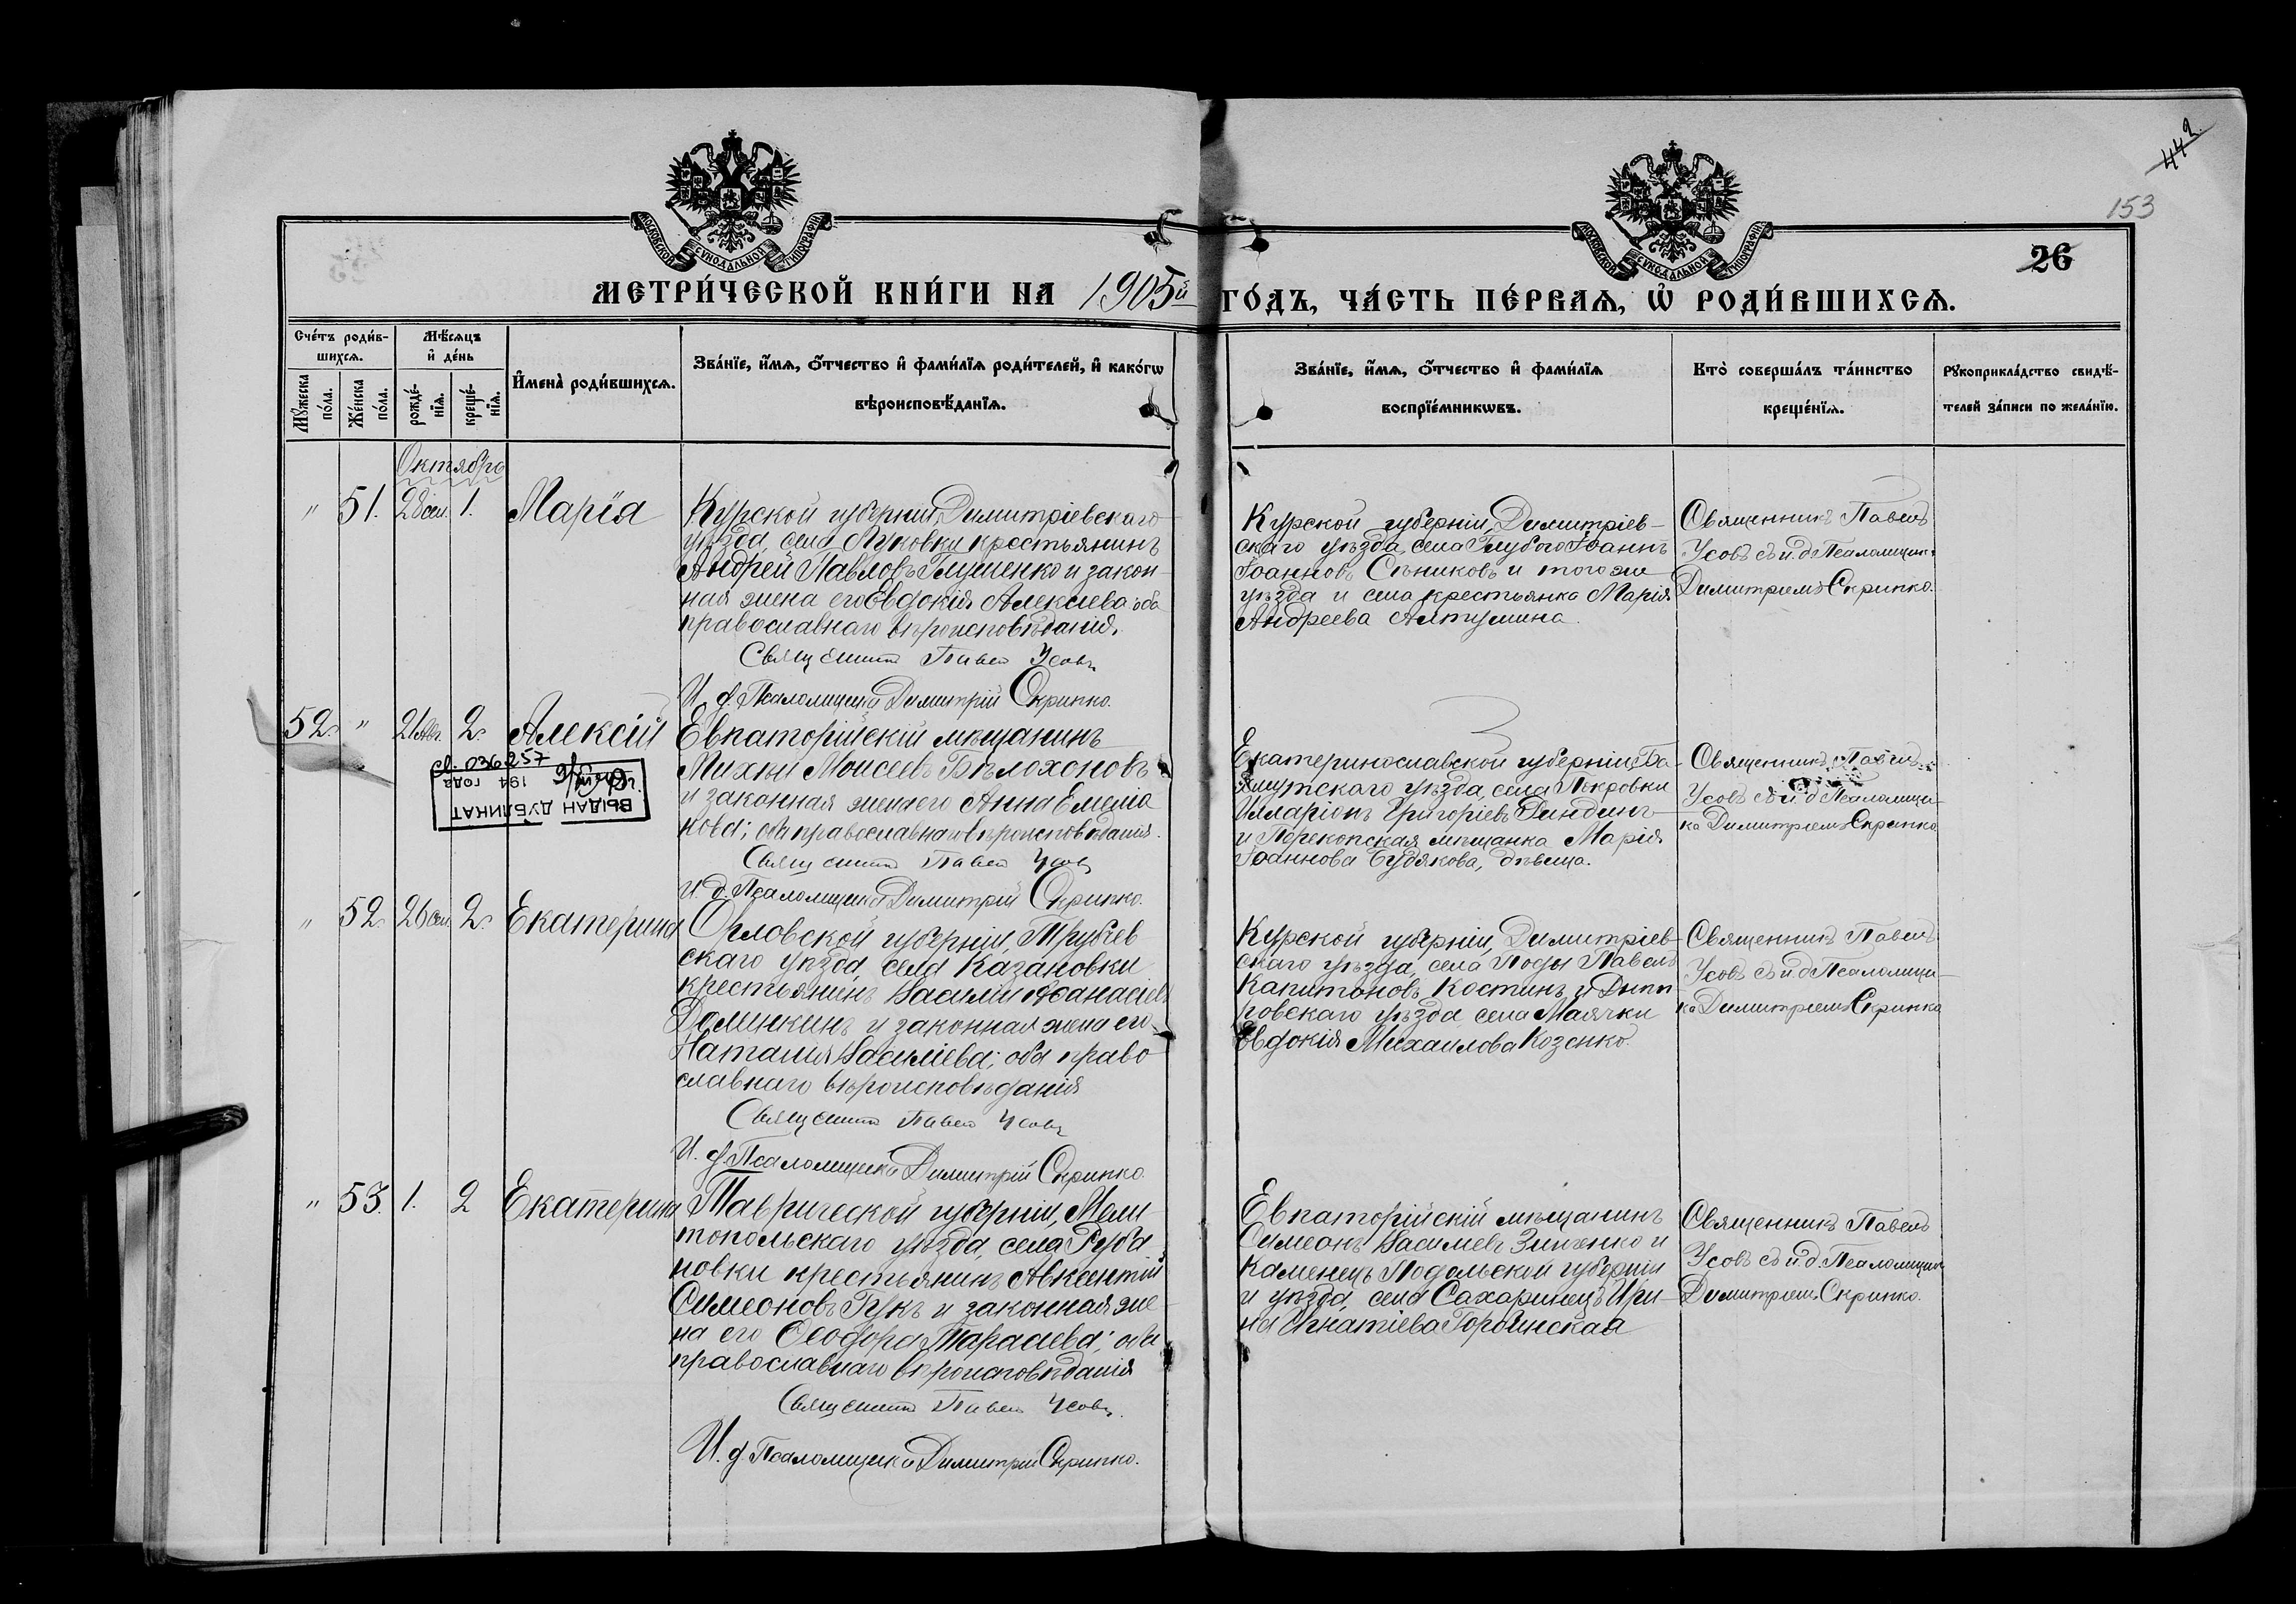 442.
153
26
МОСКОВСКОЙ СѴНОДАЛЬНОЙ ТИПОГРАФІИ
МОСКОВСКОЙ СѴНОДАЛЬНОЙ ТИПОГРАФІИ
МЕТРИ́ЧЕСКОЙ КНИ́ГИ НА 1905й ГО́ДЪ, ЧА́СТЬ ПЕ́РВАѦ, Ѡ҆ РОДИ́ВШИХСѦ.
Сче́тъ роди́в-
шихсѧ.
Мꙋ́жеска
по́ла.
Же́нска
по́ла.
Мѣ́сѧцъ
и҆ де́нь
рожде́-
нїѧ.
креще́-
нїѧ.
И҆мена̀ роди́вшихсѧ.
Зва́нїе, и҆́мѧ, ѻ҆́тчество и҆ фами́лїѧ роди́телей, и҆ како́гѡ
вѣроисповѣ́данїѧ.
Зва́нїе, и҆́мѧ, ѻ҆́тчество и҆ фами́лїѧ
воспрїе́мникѡвъ.
Кто̀ соверша́лъ та́инство
креще́нїѧ.
Рꙋкоприкла́дство свидѣ́-
телей за́писи по жела́нїю.
Октябрь
" 51. 28 сен. 1. Марія
Курской губерніи, Димитріевскаго
уѣзда, села Луковки крестьянинъ
Андрей Павловъ Глушенко и закон-
ная жена его Евдокія Алексіева; оба
православнаго вѣроисповѣданія.
Священникъ Павелъ Усовъ
И. д. Псаломщика Димитрій Скрипко.
Курской губерніи, Димитріев-
скаго уѣзда, села Глубого Іоаннъ
Іоанновъ Сѣниковъ и того же
уѣзда и села крестьянка Марія
Андреева Алтушина.
Священникъ Павелъ
Усовъ съ и. д. Псаломщик.
Димитріемъ Скрипко.
52. " 21 Авг. 2. Алексій
Евпаторійскій мѣщанинъ
Михѣй Моисеевъ Бѣлохоновъ
и законная жена его Анна Емеліа
нова; оба православнаго вѣроисповѣданія.
Священникъ Павелъ Усовъ
И. д. Псаломщика Димитрій Скрипко.
Екатеринославской губерніи, Ба-
хмутскаго уѣзда, села Покровки
Илларіонъ Григоріевъ Диндинъ
и Перекопская мѣщанка Марія
Іоаннова Будякова, дѣвица.
Священникъ Павелъ
Усовъ съ и. д. Псаломщи-
ка Димитріемъ Скрипко.
св. 036257
194 года
ВЫДАН ДУБЛИКАТ
" 52. 26 сен. 2. Екатерина
Орловской губерніи, Трубчев
скаго уѣзда, села Казановки
крестьянинъ Василій Аѳанасіевъ
Доминкинъ и законная жена его
Наталия Василіева; оба право
славнаго вѣроисповѣданія
Священникъ Павелъ Усовъ
И. д. Псаломщика Димитрій Скрипко.
Курской губерніи, Димитріев-
скаго уѣзда, села Поды Павелъ
Капитоновъ Костинъ и Днѣп-
ровскаго уѣзда села Маячки
Евдокія Михаилова Козенко.
Священникъ Павелъ
Усовъ съ и. д. Псаломщи-
ка Димитріемъ Скрипко
" 53. 1. 2 Екатерина
Таврической губерніи, Мели-
топольскаго уѣзда, села Руба
новки крестьянинъ Авксентій
Симеоновъ Гукъ и законная же-
на его Ѳеодора Тарасіева; оба
православнаго вѣроисповѣданія
Священникъ Павелъ Усовъ.
И. д. Псаломщика Димитрій Скрипко.
Евпаторійскій мѣщанинъ
Симеонъ Василіевъ Зинченко и
Каменецъ Подольской губерніи
и уѣзда, села Сахаринецъ Ири-
на Игнатіева Горбинская
Священникъ Павелъ
Усовъ съ и. д. Псаломщик.
Димитріемъ Скрипко.